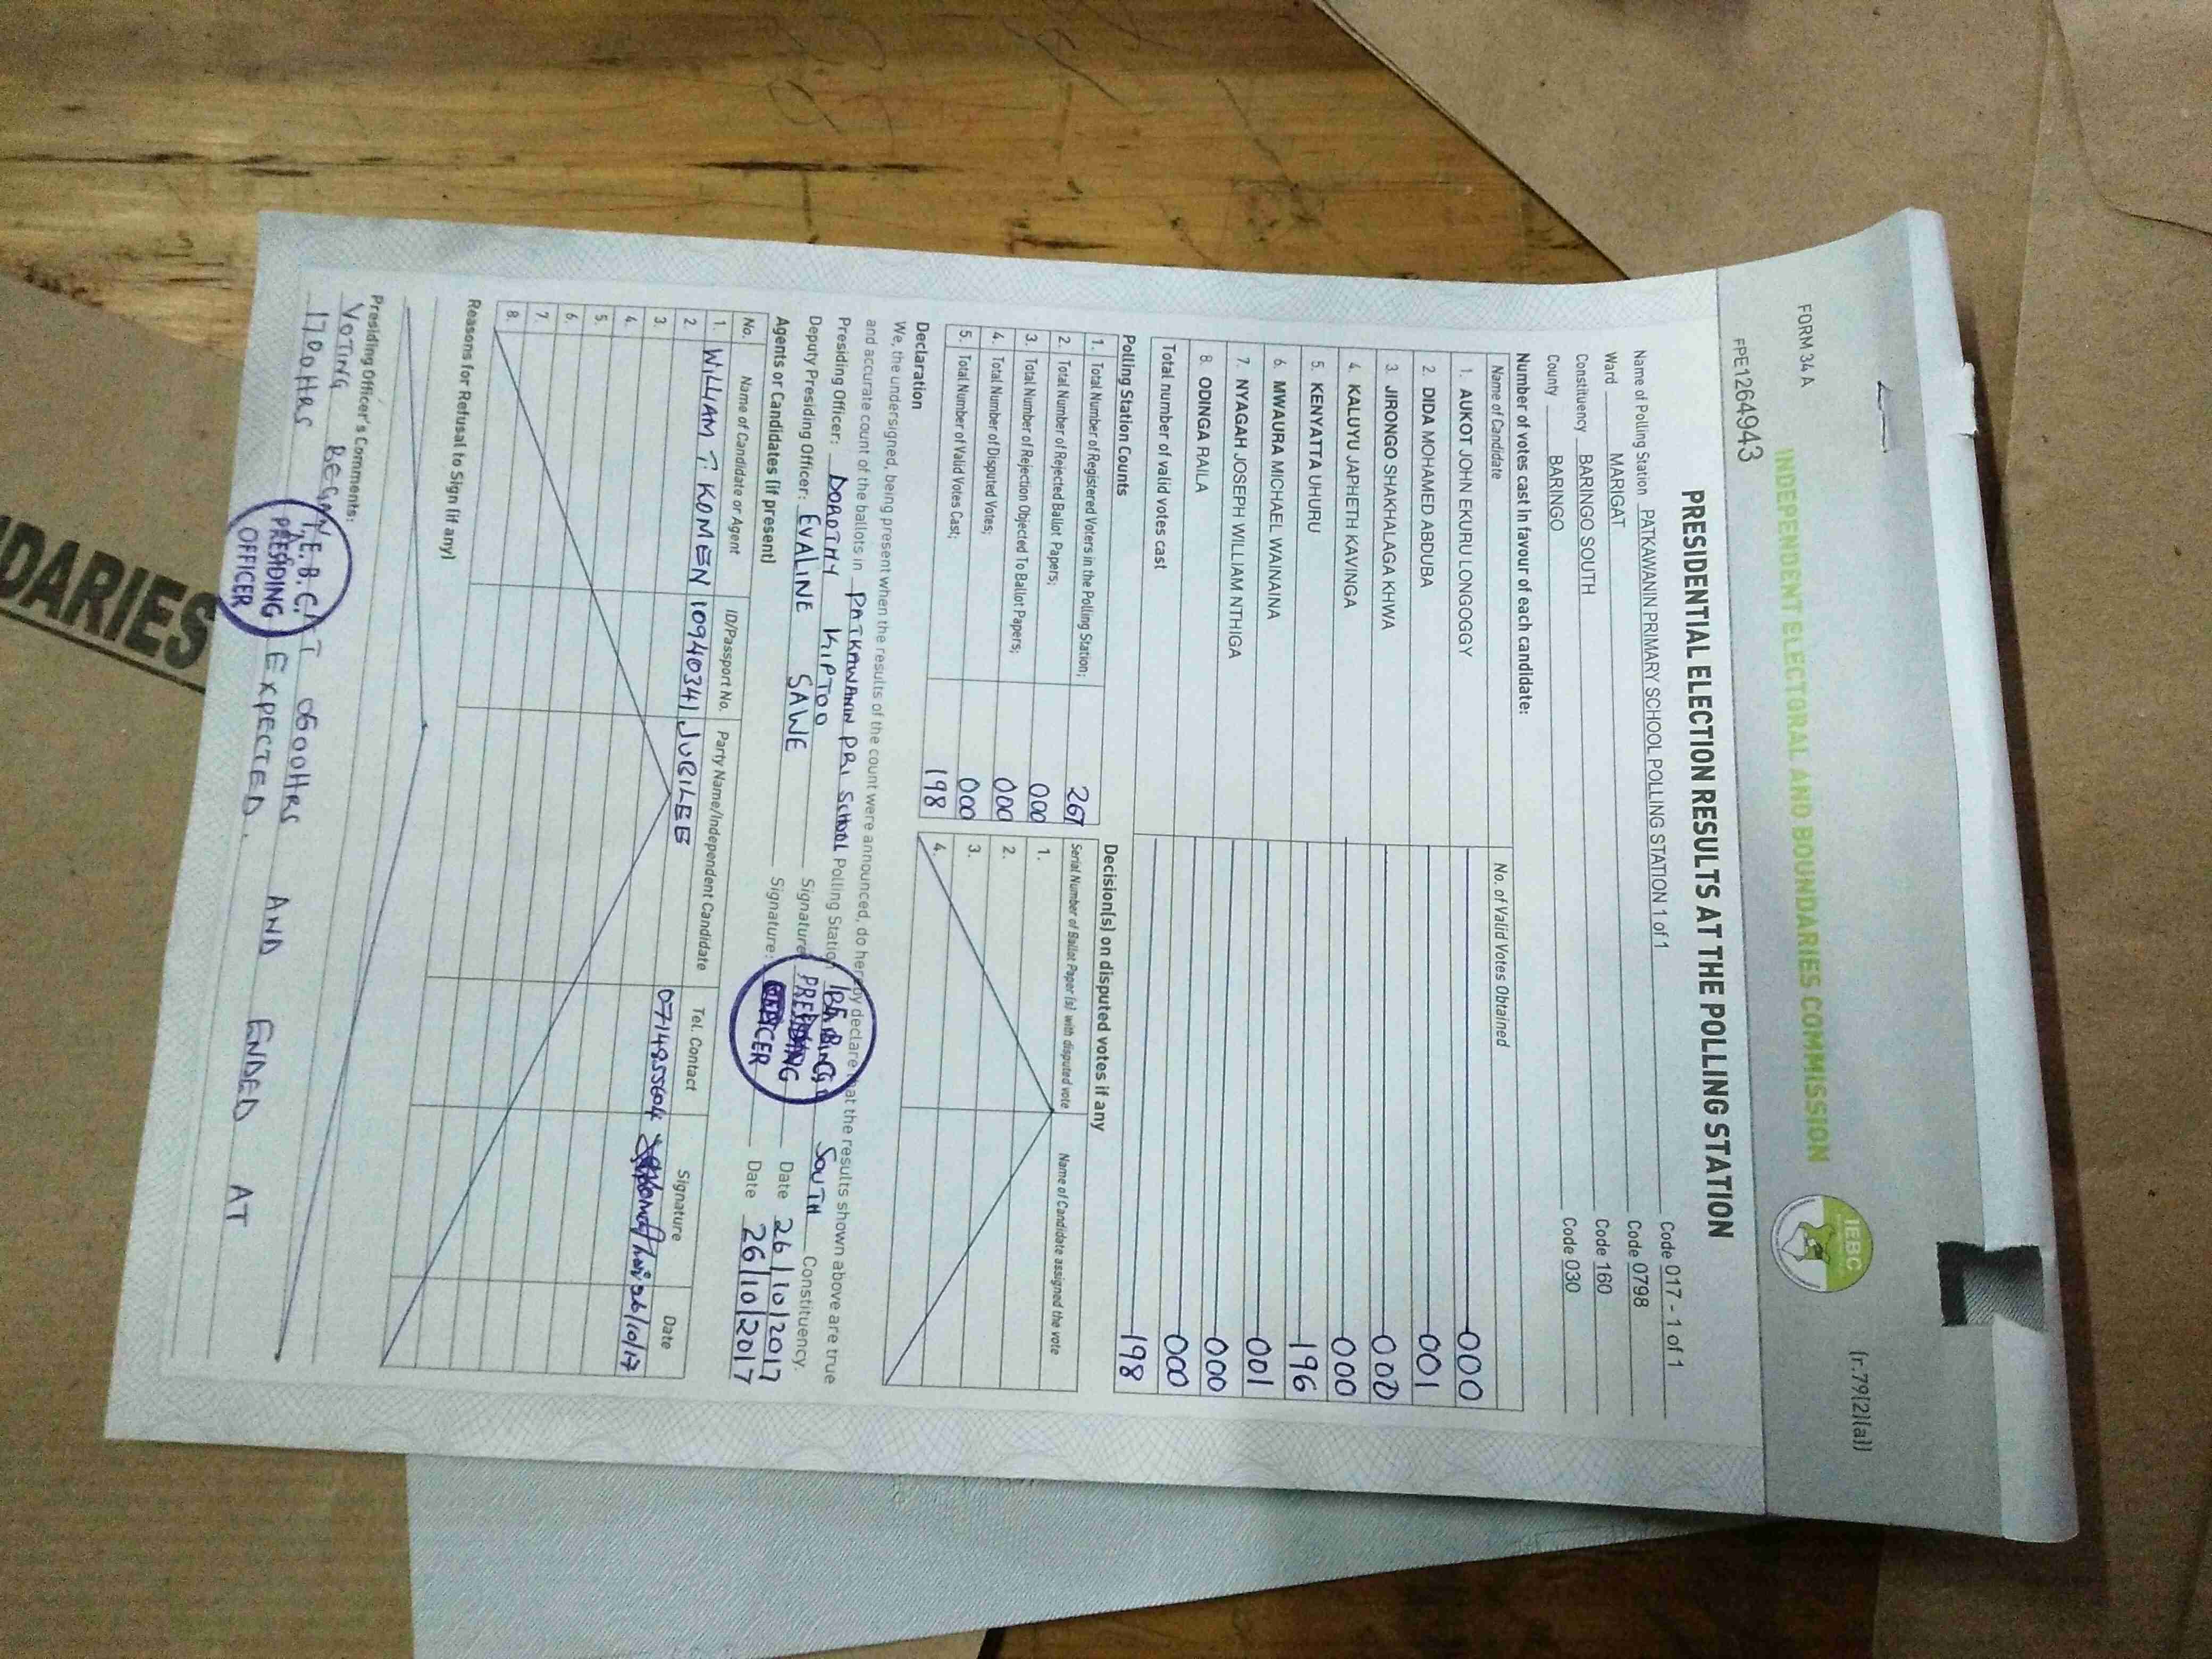 FORM 34 A
(r.79(2)(a))
INDEPENDENT ELECTORAL AND BOUNDARIES COMMISSION
IEBC
FPE1264943
PRESIDENTIAL ELECTION RESULTS AT THE POLLING STATION
Name of Polling Station PATKAWANIN PRIMARY SCHOOL POLLING STATION 1 of 1 Code 017 - 1 of 1
Ward MARIGAT Code 0798
Constituency BARINGO SOUTH Code 160
County BARINGO Code 030
Number of votes cast in favour of each candidate:
Name of Candidate No. of Valid Votes Obtained
1. AUKOT JOHN EKURU LONGOGGY 000
2. DIDA MOHAMED ABDUBA 001
3. JIRONGO SHAKHALAGA KHWA 000
4. KALUYU JAPHETH KAVINGA 000
5. KENYATTA UHURU 196
6. MWAURA MICHAEL WAINAINA 001
7. NYAGAH JOSEPH WILLIAM NTHIGA 000
8. ODINGA RAILA 000
Total number of valid votes cast 198
Polling Station Counts
1. Total Number of Registered Voters in the Polling Station; 267
2. Total Number of Rejected Ballot Papers; 000
3. Total Number of Rejection Objected To Ballot Papers; 000
4. Total Number of Disputed Votes; 000
5. Total Number of Valid Votes Cast; 198
Decision(s) on disputed votes if any
Serial Number of Ballot Paper (s) with disputed vote Name of Candidate assigned the vote
1.
2.
3.
4.
Declaration
We, the undersigned, being present when the results of the count were announced, do hereby declare that the results shown above are true
and accurate count of the ballots in PATKAWANIN PRI SCHOOL Polling Station BARINGO SOUTH Constituency.
Presiding Officer: DOROTHY KIPTOO Signature Date 26/10/2017
Deputy Presiding Officer: EVALINE SAWE Signature: Date 26/10/2017
PRESIDING
OFFICER
Agents or Candidates (if present)
No. Name of Candidate or Agent ID/Passport No. Party Name/Independent Candidate Tel. Contact Signature Date
1. WILLIAM T. KOMEN 10940341 JUBILEE 0714955604 26/10/17
2
3.
4.
5.
6.
7.
8.
Reasons for Refusal to Sign (if any)
Presiding Officer's Comments:
VOTING BEGAN AT 0600HRS AND ENDED AT
1700HRS EXPECTED.
I.E.B.C.
PRESIDING
OFFICER
DARIES